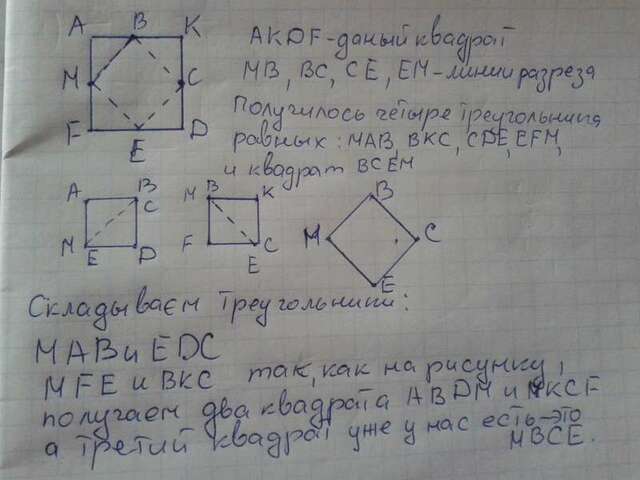 A B K
M C
F E D
AKDF - даный квадрат
MB, BC, CE, EM - линии разреза
Получилось четыре треугольника
равных: MAB, BKC, CDE, EFM,
и квадрат BCEM
A B C
M E D
M B K
F C E
M B C E
Складываем треугольники:
MAB и EDC
MFE и BKC так, как на рисунку,
получаем два квадрата ABDM и MKCF
а третий квадрат уже у нас есть - это
MBCE.